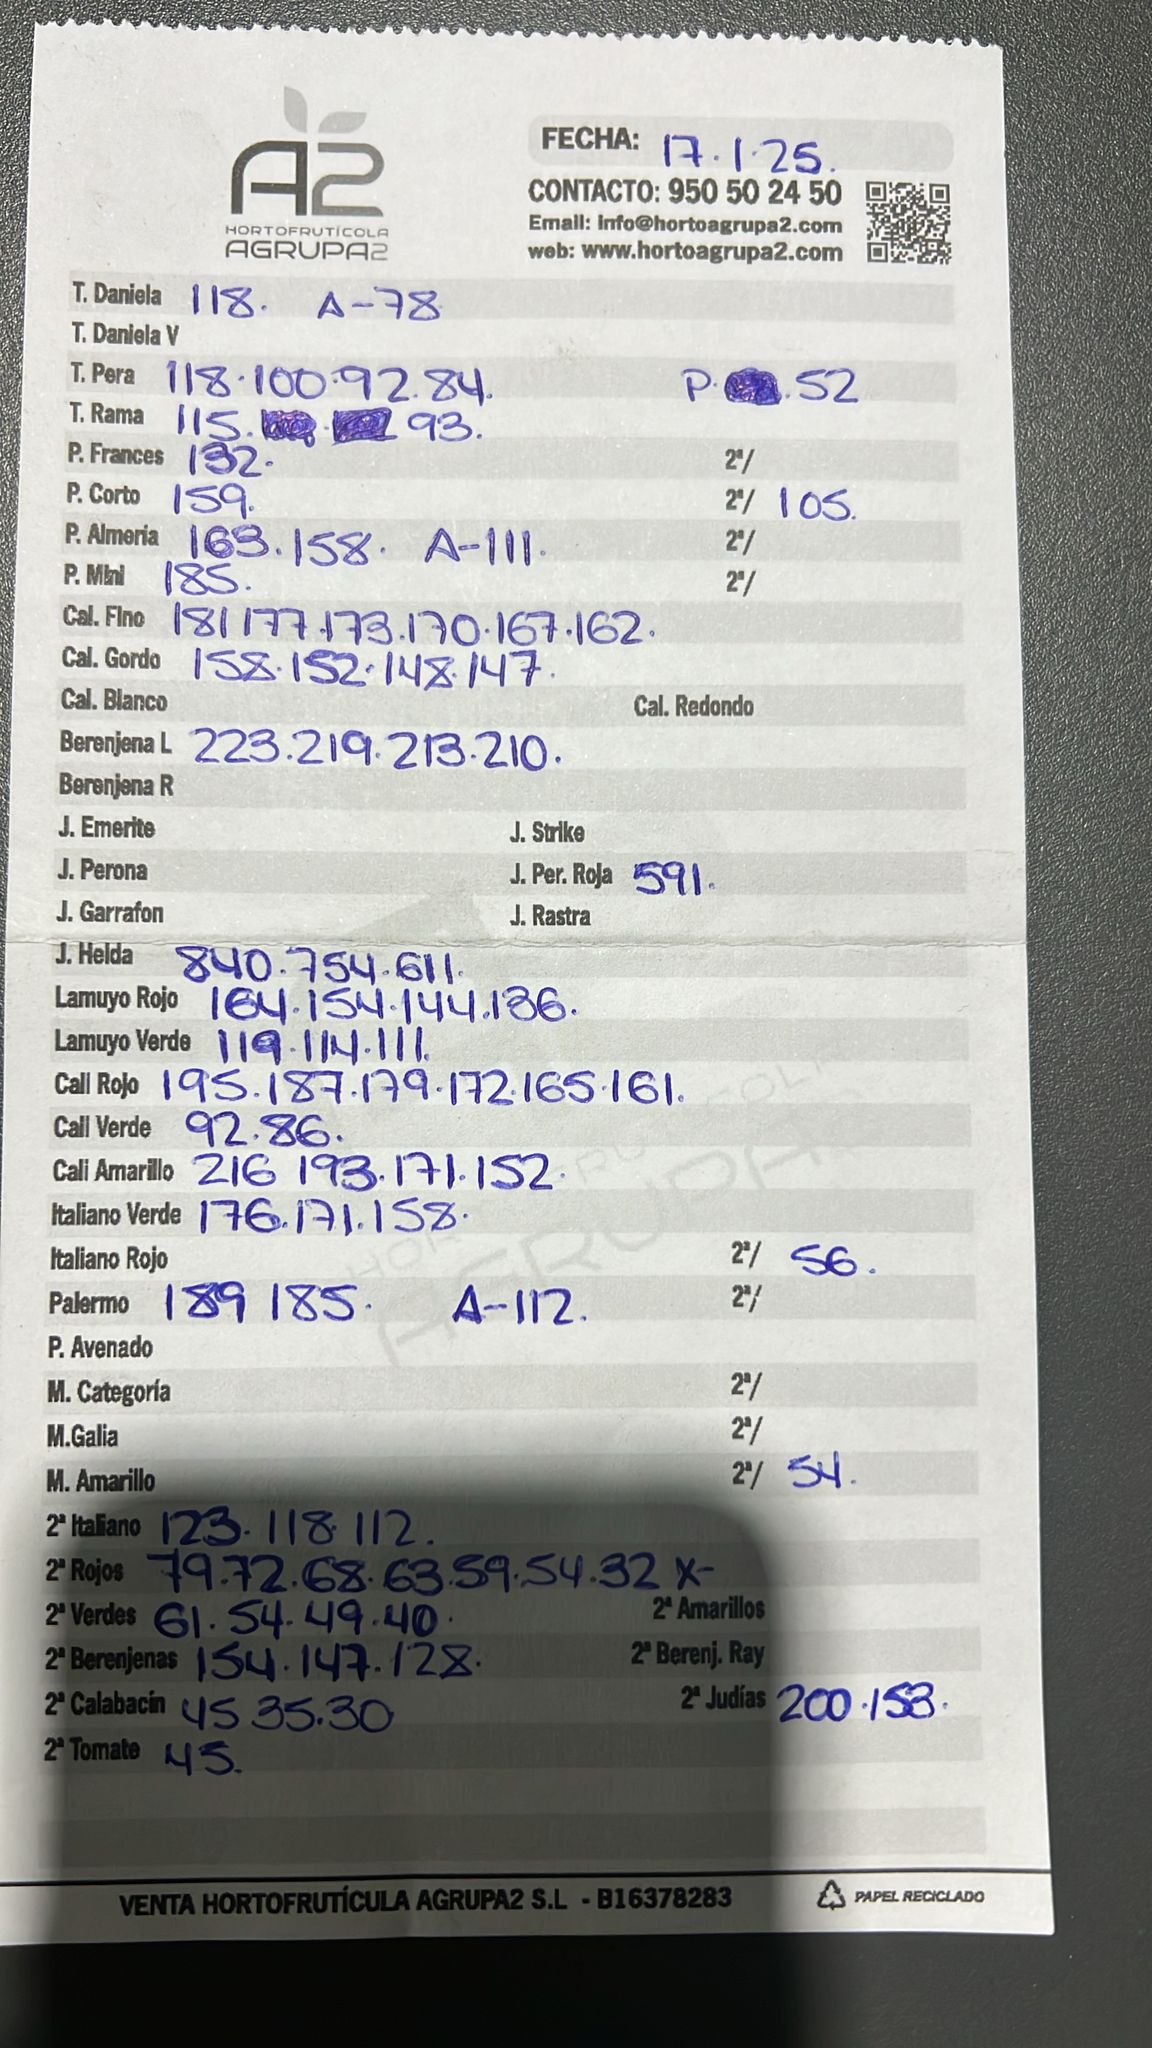 A2
HORTOFRUTÍCOLA
AGRUPA2
FECHA: 17.1.25.
CONTACTO: 950 50 24 50
Email: info@hortoagrupa2.com
web: www.hortoagrupa2.com
T. Daniela 118. A-78
T. Daniela V
T. Pera 118.100.92.84. P. .52
T. Rama 115. 93.
P. Frances 132. 2ª/
P. Corto 159. 2ª/ 105.
P. Almería 163.158. A-111. 2ª/
P. Mini 185. 2ª/
Cal. Fino 181 177.173.170.167.162.
Cal. Gordo 158.152.148.147.
Cal. Blanco Cal. Redondo
Berenjena L 223.219.213.210.
Berenjena R
J. Emerite J. Strike
J. Perona J. Per. Roja 591.
J. Garrafon J. Rastra
J. Helda 840.754.611.
Lamuyo Rojo 164.154.144.136.
Lamuyo Verde 119.114.111.
Cali Rojo 195.187.179.172.165.161.
Cali Verde 92.86.
Cali Amarillo 216 193.171.152.
Italiano Verde 176.171.158.
Italiano Rojo 2ª/ 56.
Palermo 189 185. A-112. 2ª/
P. Avenado
M. Categoría 2ª/
M.Galia 2ª/
M. Amarillo 2ª/ 54.
2ª Italiano 123.118.112.
2ª Rojos 79.72.68.63.59.54.32 X-
2ª Verdes 61.54.49.40. 2ª Amarillos
2ª Berenjenas 154.147.128. 2ª Berenj. Ray
2ª Calabacín 45 35.30 2ª Judías 200.153.
2ª Tomate 45.
VENTA HORTOFRUTÍCULA AGRUPA2 S.L - B16378283 PAPEL RECICLADO